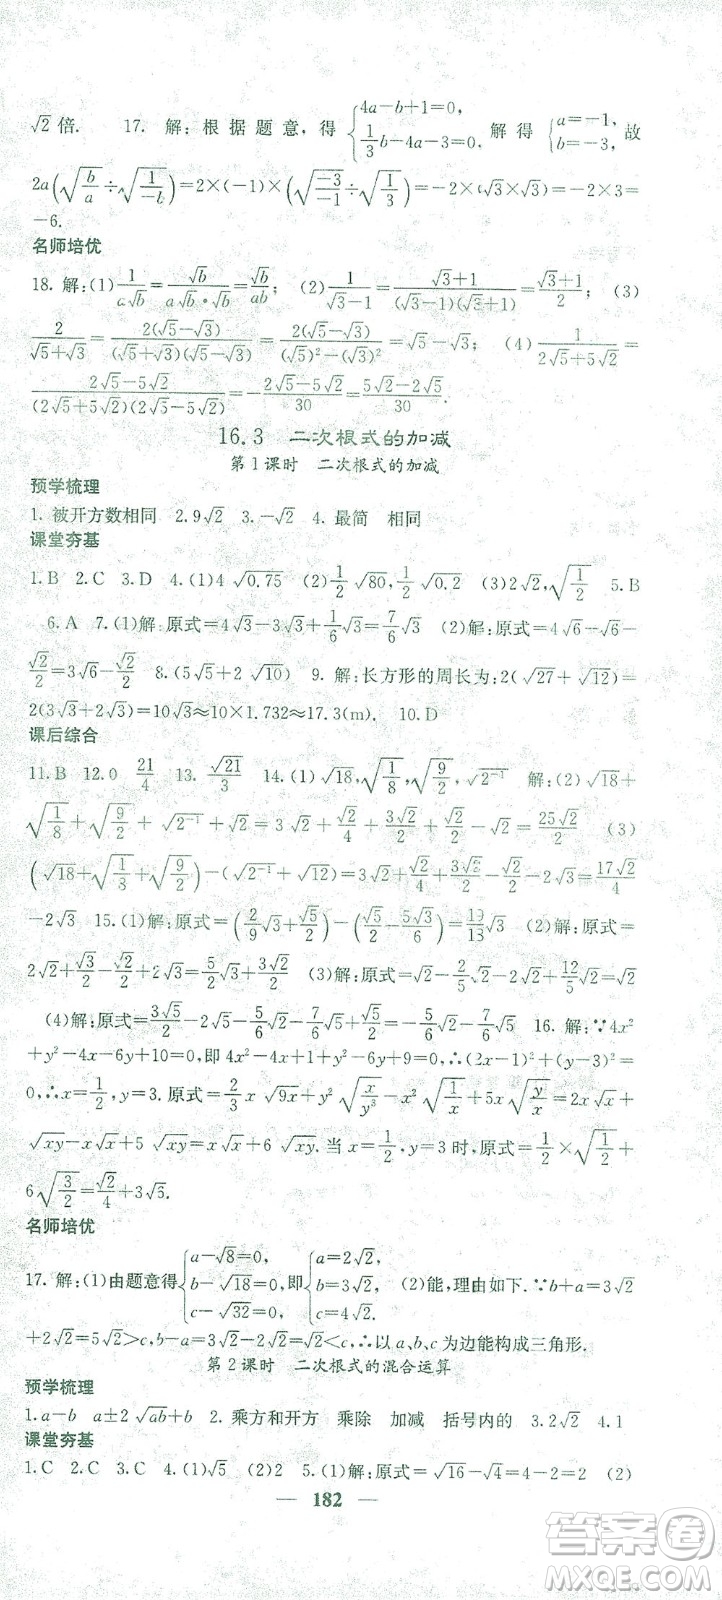 √2 倍. 17. 解:根据题意,得{4a−b+1=0, 1/3b−4a−3=0,解得{a=−1, b=−3,故
2a(√(b/a)÷√(1/−b))=2×(−1)×(√(−3/−1)÷√(1/3))=−2×(√3×√3)=−2×3=
−6.
名师培优
18. 解:(1)1/(a√b)=√b/(a√b·√b)=√b/(ab); (2)1/(√3−1)=(√3+1)/((√3−1)(√3+1))=(√3+1)/2; (3)
2/(√5+√3)=2(√5−√3)/((√5)²−(√3)²)=2(√5−√3)/((√5)²−(√3)²)=√5−√3; (4)1/(2√5+5√2)=
(2√5−5√2)/((2√5+5√2)(2√5−5√2))=(2√5−5√2)/−30=(5√2−2√5)/30.
16.3 二次根式的加减
第1课时 二次根式的加减
预学梳理
1. 被开方数相同 2. 9√2 3. −√2 4. 最简 相同
课堂夯基
1. B 2. C 3. D 4. (1)4√0.75 (2)1/2√80,1/2√0.2 (3)2√2,√(1/2) 5. B
6. A 7. (1)解:原式=4√3−3√3+1/6√3=7/6√3 (2)解:原式=4√6−√6−
√2/2=3√6−√2/2 8. (5√5+2√10) 9. 解:长方形的周长为:2(√27+√12)=
2(3√3+2√3)=10√3≈10×1.732≈17.3(m). 10. D
课后综合
11. B 12. 0 21/4 13. √21/3 14. (1)√18,√(1/8),√(9/2),√(2⁻¹) 解:(2)√18+
√(1/8)+√(9/2)+√(2⁻¹)+√2=3√2+√2/4+3√2/2+√2/2+√2=25√2/4 (3)
(√18+√(1/8)+√(9/2))−(√(2⁻¹)+√12)=3√2+√2/4+3√2/2−√2/2−2√3=17√2/4
−2√3 15. (1)解:原式=(2/9√3+√5/2)−(√5/2−5√3/6)=19/18√3 (2)解:原式=
2√2+√3/2−√2/2+2√3=5/2√3+3√2/2 (3)解:原式=√2−2/5√5−2√2+12/5√5=2√5−√2
(4)解:原式=3√5/2−2√5−5/6√2−2/3√5=−5/6√2−7/6√5 16. 解:∵4x²
+y²−4x−6y+10=0,即4x²−4x+1+y²−6y+9=0,∴(2x−1)²+(y−3)²=
0,∴x=1/2,y=3. 原式=2/3x√9x+y²√(x/y³)−x²√(1/x)+5x√(y/x)=2x√x+
√xy−x√x+5√xy=x√x+6√xy. 当x=1/2,y=3时,原式=1/2×√(1/2)+
6√(3/2)=√2/4+3√6.
名师培优
17. 解:(1)由题意得{a−√8=0, b−√18=0, c−√32=0,即{a=2√2, b=3√2, c=4√2. (2)能,理由如下.∵b+a=3√2
+2√2=5√2>c,b−a=3√2−2√2=√2<c,∴以a、b、c为边能构成三角形.
第2课时 二次根式的混合运算
预学梳理
1. a−b a±2√ab+b 2. 乘方和开方 乘除 加减 括号内的 3. 2√2 4. 1
课堂夯基
1. C 2. C 3. C 4. (1)√5 (2)2 5. (1)解:原式=√16−√4=4−2=2 (2)
— 182 —
答案圈
MXQE.COM